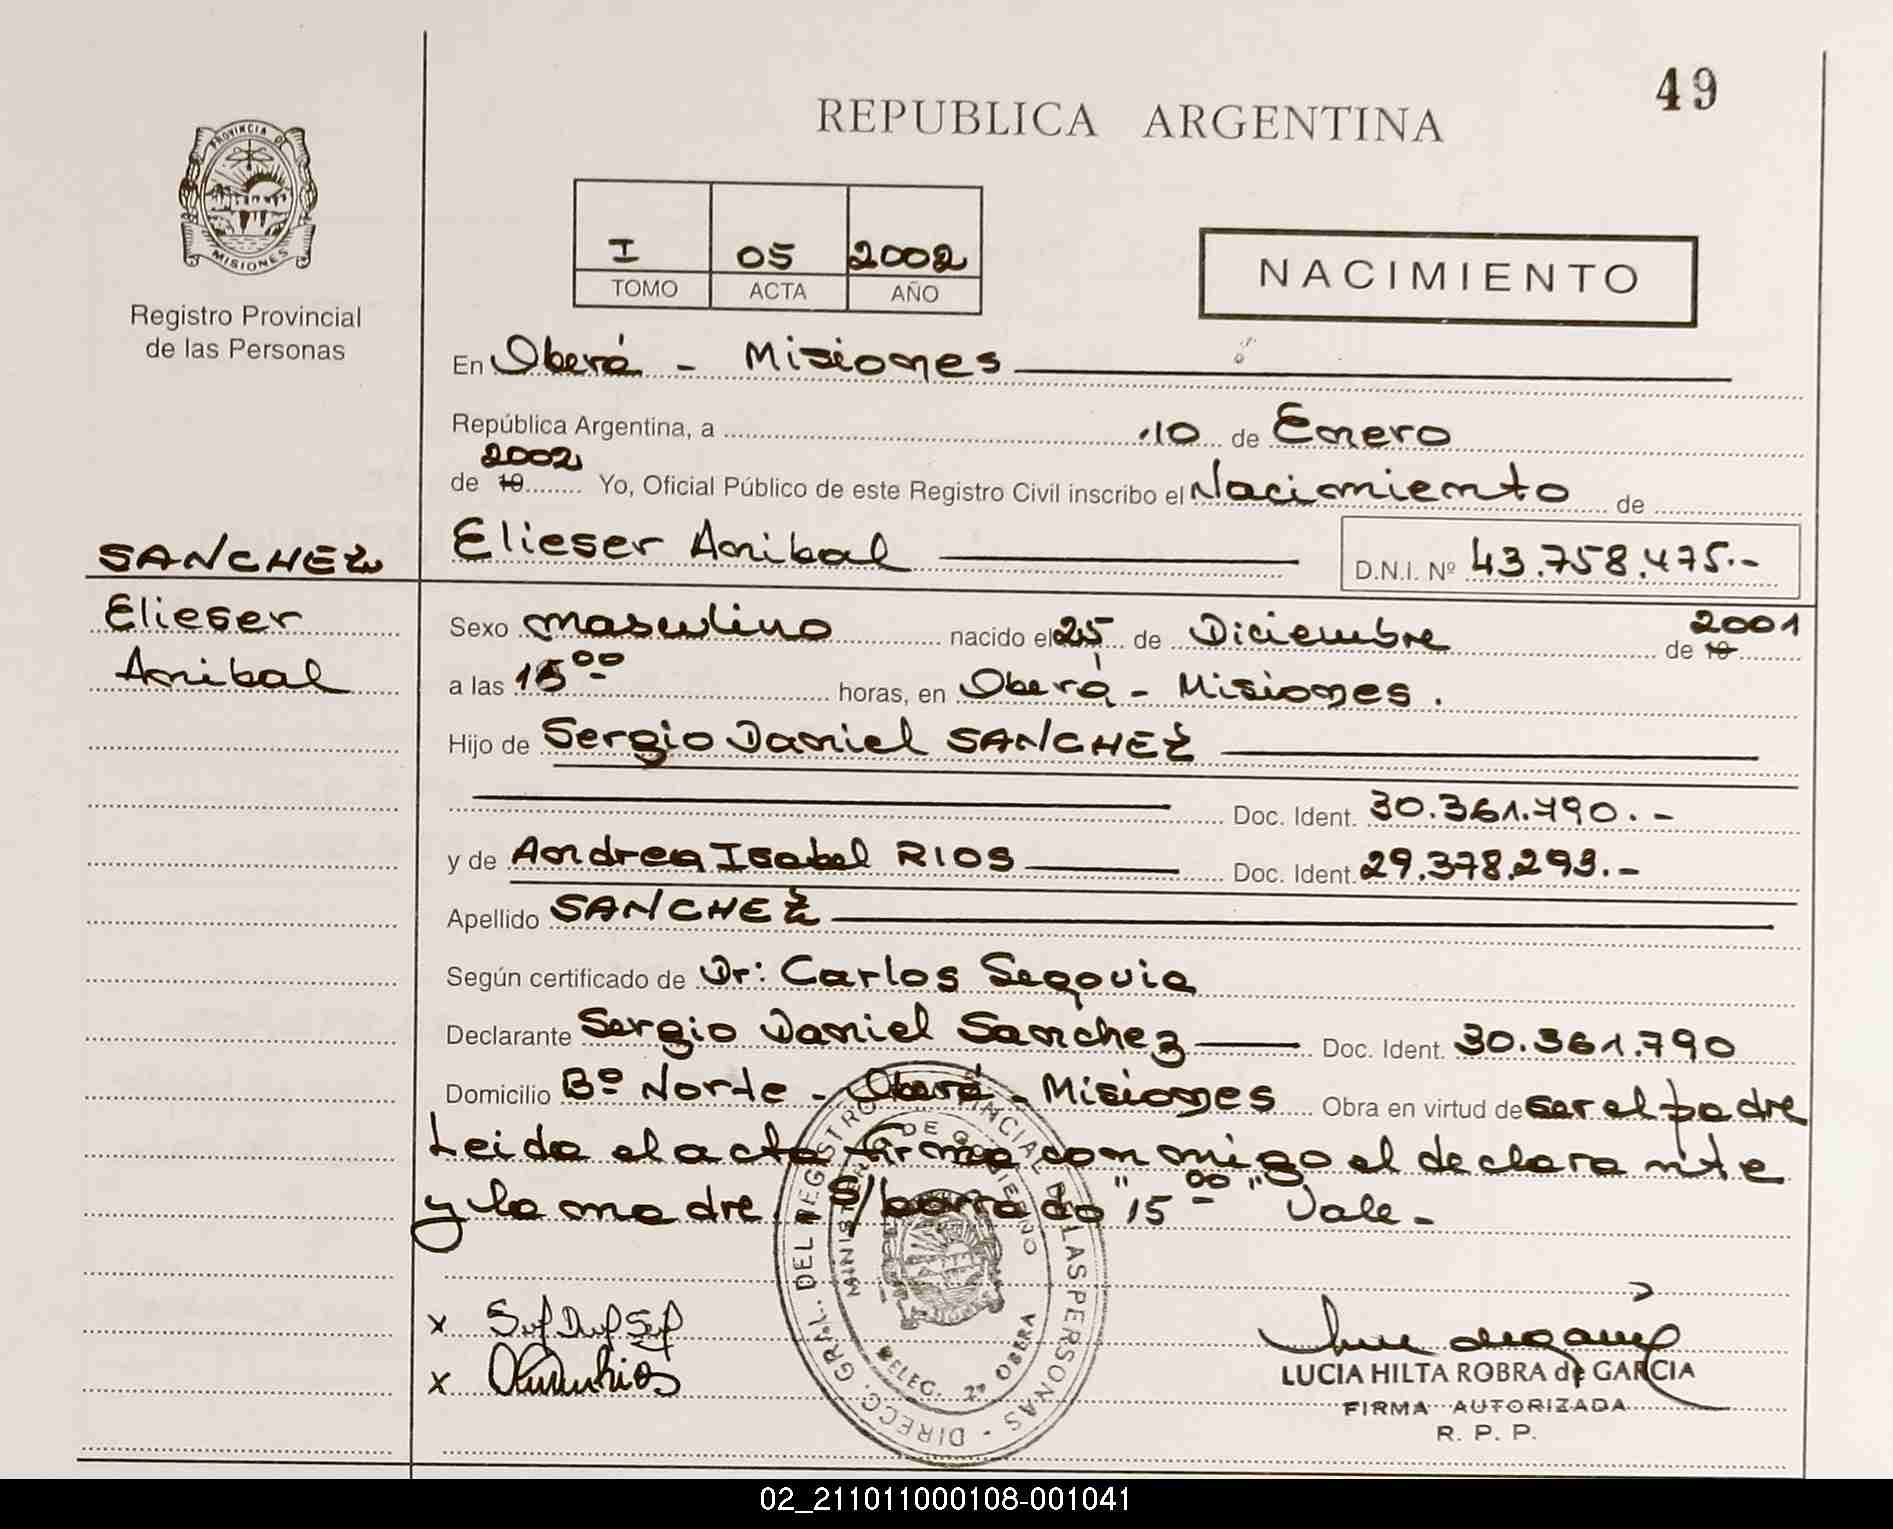 49
REPUBLICA ARGENTINA
PROVINCIA DE
MISIONES
Registro Provincial
de las Personas
I 05 2002
TOMO ACTA AÑO
NACIMIENTO
En Oberá - Misiones
República Argentina, a 10 de Enero
2002
de 19 Yo, Oficial Público de este Registro Civil inscribo el Nacimiento de
SANCHEZ
Elieser Anibal D.N.I. Nº 43.758.475.-
Elieser
Anibal
Sexo masculino nacido el 25 de Diciembre de 19 2001
a las 15 00 horas, en Oberá - Misiones.
Hijo de Sergio Daniel SANCHEZ
Doc. Ident. 30.361.790.-
y de Andrea Isabel RIOS Doc. Ident. 29.378.293.-
Apellido SANCHEZ
Según certificado de Dr: Carlos Segovia
Declarante Sergio Daniel Sanchez Doc. Ident. 30.361.790
Domicilio Bº Norte - Oberá - Misiones Obra en virtud de ser el padre
Leida el acta firma conmigo el declarante
y la madre. S/borrado "15 00" Vale -
DIRECC. GRAL. DEL REGISTRO PROVINCIAL DE LAS PERSONAS -
MINISTERIO DE GOBIERNO
DELEG. 2º OBERA
x
x
LUCIA HILTA ROBRA de GARCIA
FIRMA AUTORIZADA
R. P. P.
02_211011000108-001041